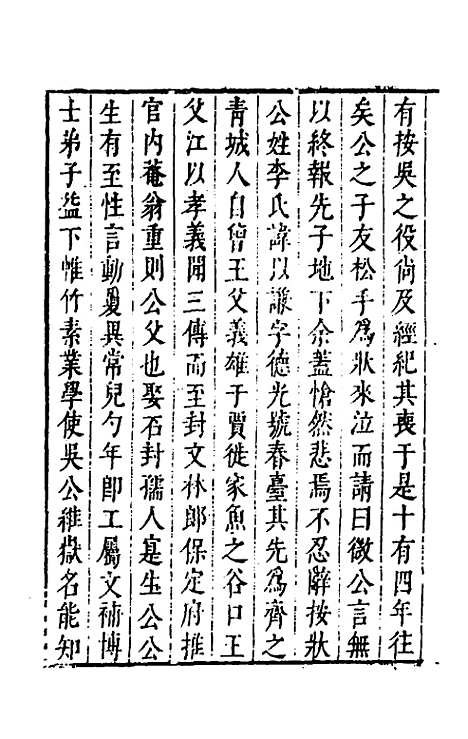 有按吳之役尙及經紀其喪于是十有四年往
矣公之子友松手爲狀來泣而請曰微公言無
以終報先子地下余蓋愴然悲焉不忍辭按狀
公姓李氏諱以謙字德光號春臺其先爲齊之
靑城人自曾王父義雄于賈徙家魚之谷口王
父江以孝義聞三傳而至封文林郎保定府推
官內菴翁重則公父也娶石封孺人寔生公公
生有至性言動夐異常兒勺年卽工屬文補博
士弟子益下帷竹素業學使吳公維嶽名能知